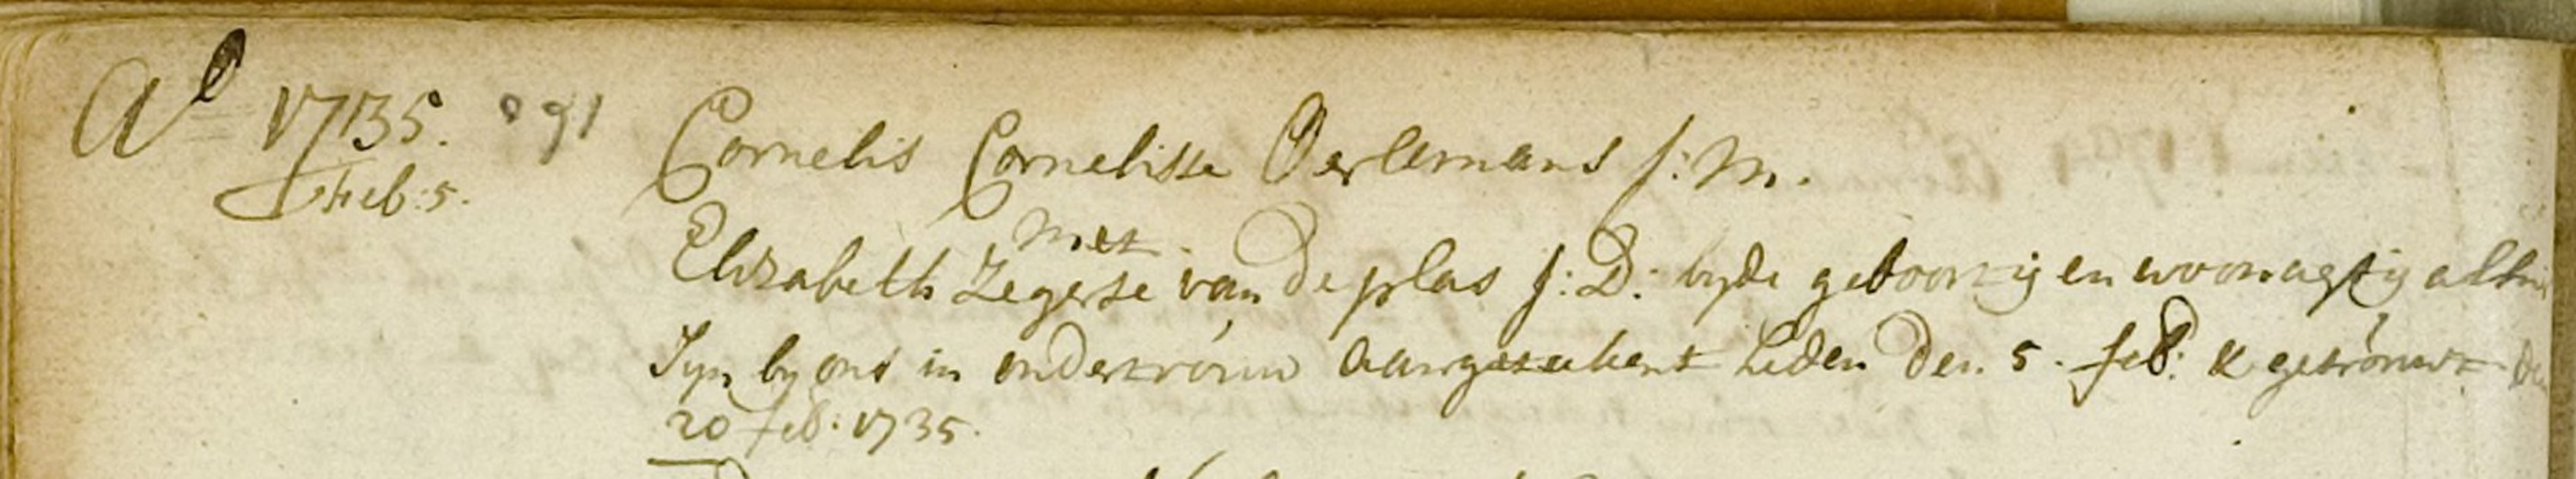 Ao 1735. 291
Feb: 5.
Cornelis Cornelisse Oerlemans J: M.
met
Elizabeth Zegerse van de plas J: D: byde geboortig en woonagtig alhier
Syn by ons in ondertrouw aangetekent heden den 5. feb: & getrouwt den
20 feb: 1735.